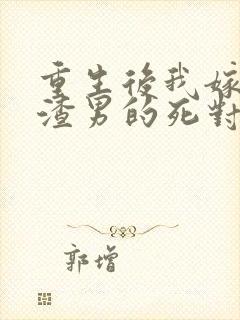 重生後我嫁
渣男的死對
郭增